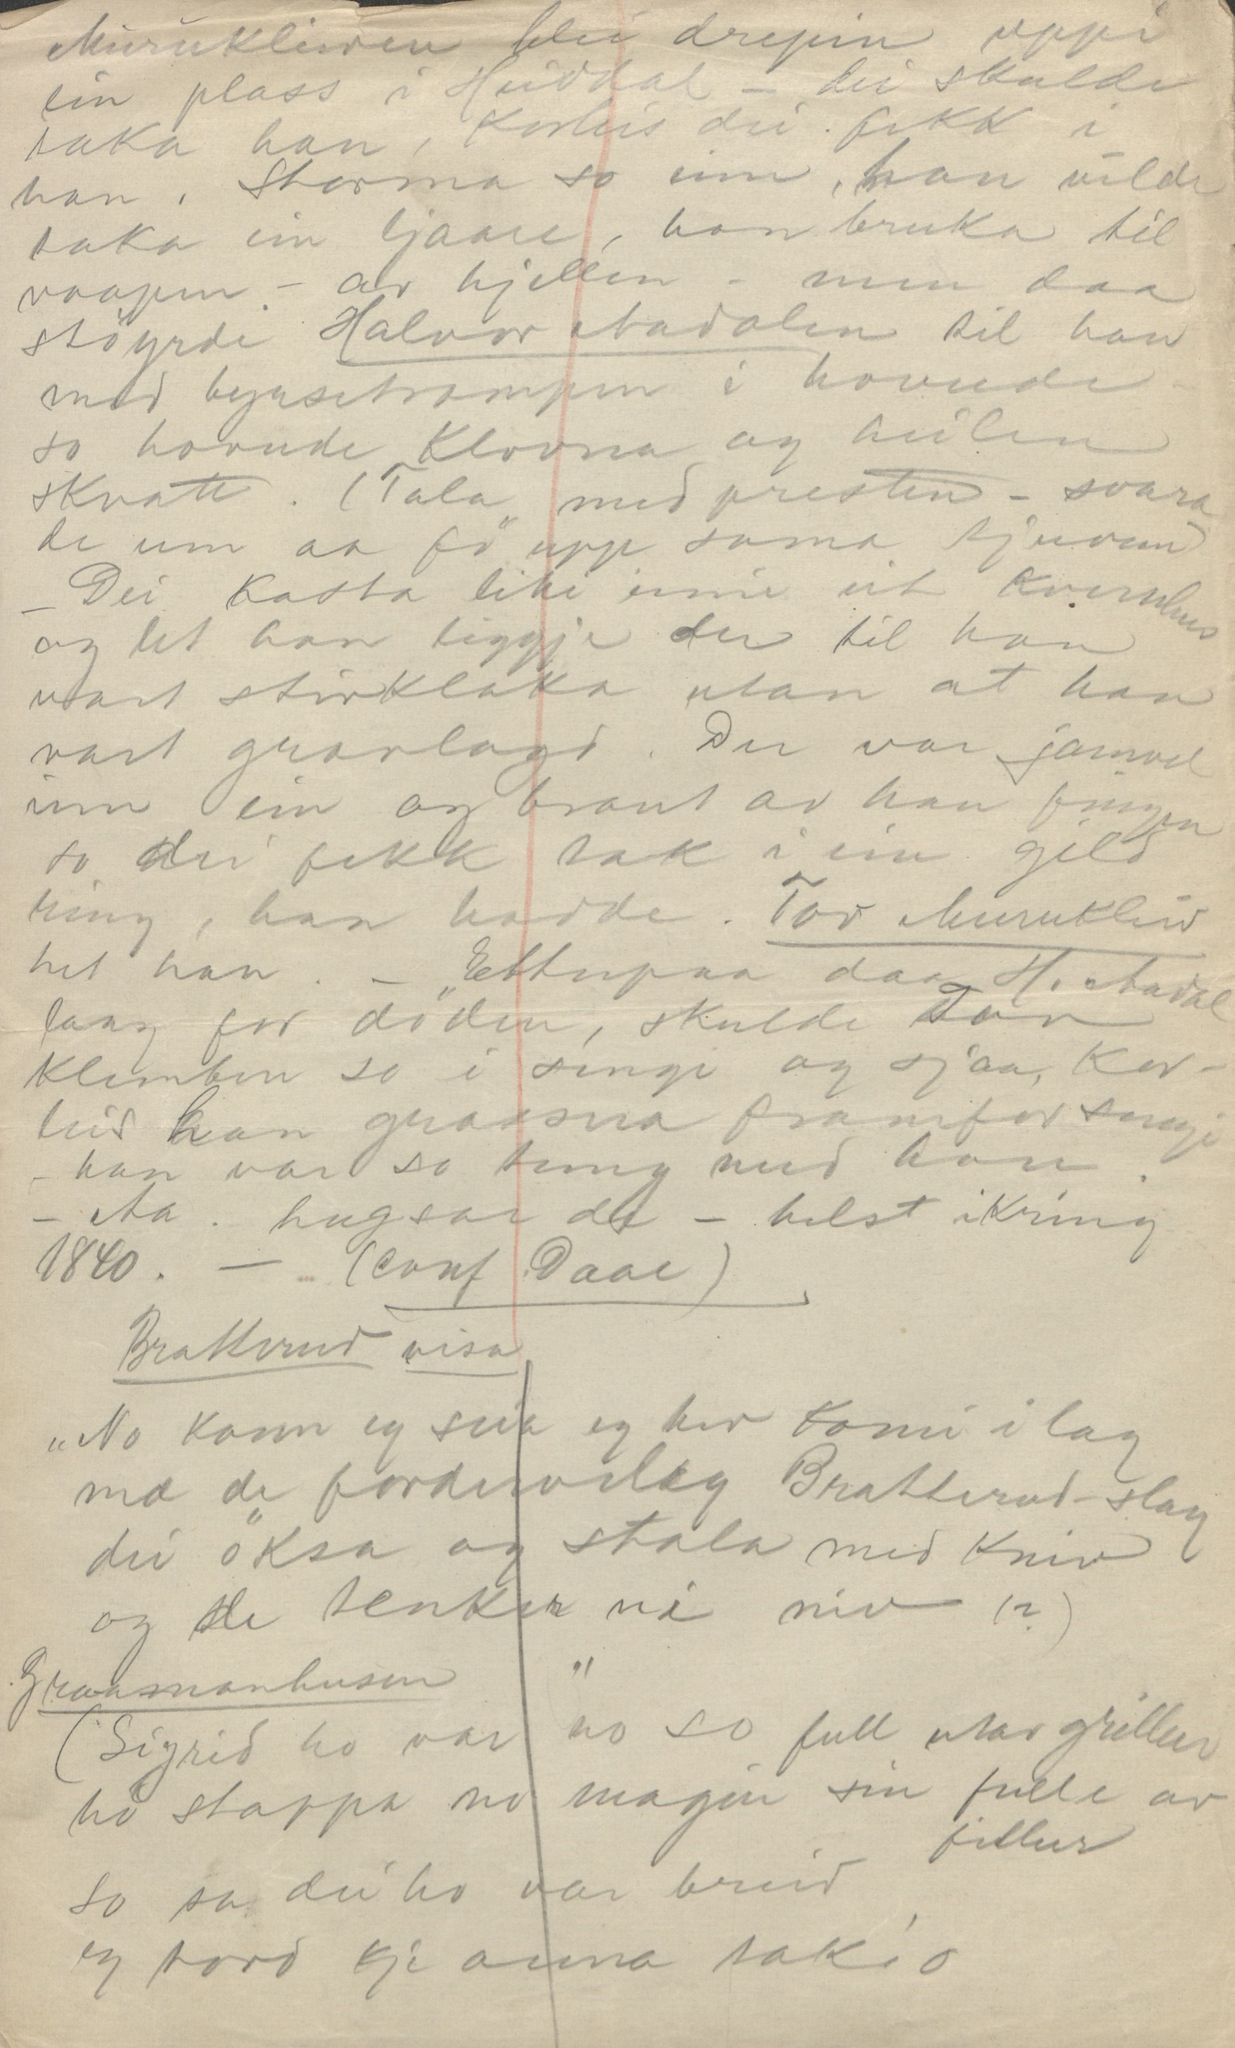 Murukleiven blei drepin uppi
ein plass i Heiddal - dei skulde
taka han, korleis dei fekk i
han. Storma so inn, han vilde
taka ein ljaae, han bruka til
vaapen - av hjellen - men daa
stöyrde Halvor Aadalen til han
med byrsetrampen i hovude -
so hovude klovna og heilen
skvatt. (Tala med presten - svara
de um aa fö upp soma tjuvan
- Dei kasta like inni eit kvernhus
og let han liggje der til han
vart stirklaka utan at han
vart gravlagd. Der var jamvel
inn ein og braut av han fingen
so dei fekk tak i ein gild
ring, han hadde. Tov Murukleiv
het han. - Ettupaa daa H. Aadal
laag for döden, skulde Tov
klemben so i sengi og sjaa, kor-
leid han graasna framfor sengi
- han var so tung med han.
- Aa. hugsar de - helst ikring
1840. - (Conf Daae)
Bratterud visa
"No kann eg seia eg her komi i lag
mæ de forderveleg Bratterud-slag
dei öksa og stala med kniv
og de tenker vi niv (?)
Graasmanhusen "
(Sigrid ho var no so full utav griller
ho stappa no magin sin fulle av
filler
so sa dei ho var breid
eg tord kje anna taki o